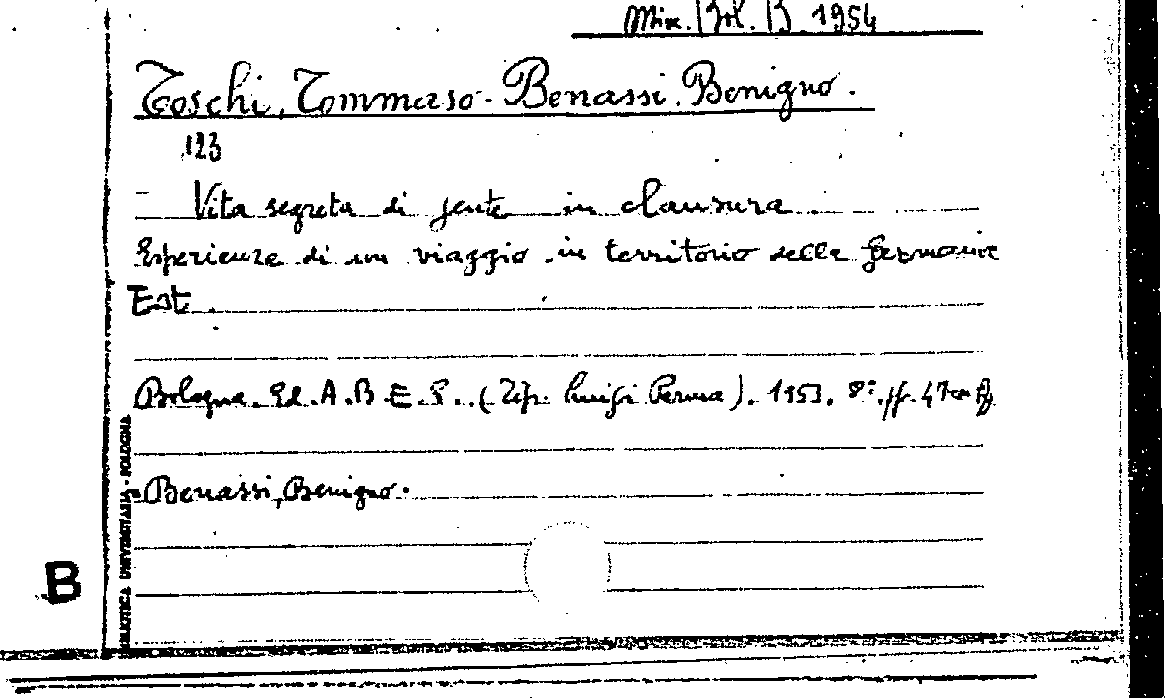 Misc. Bol. B. 1954
Toschi, Tommaso - Benassi, Benigno.
123
- Vita segreta di gente in clausura
Esperienze di un viaggio in territorio della Germania
Est
Bologna. Ed. A.B.E.S. (Tip. Luigi Parma). 1953. 8°. pp. 47
= Benassi, Benigno.
BIBLIOTECA UNIVERSITARIA - BOLOGNA
B